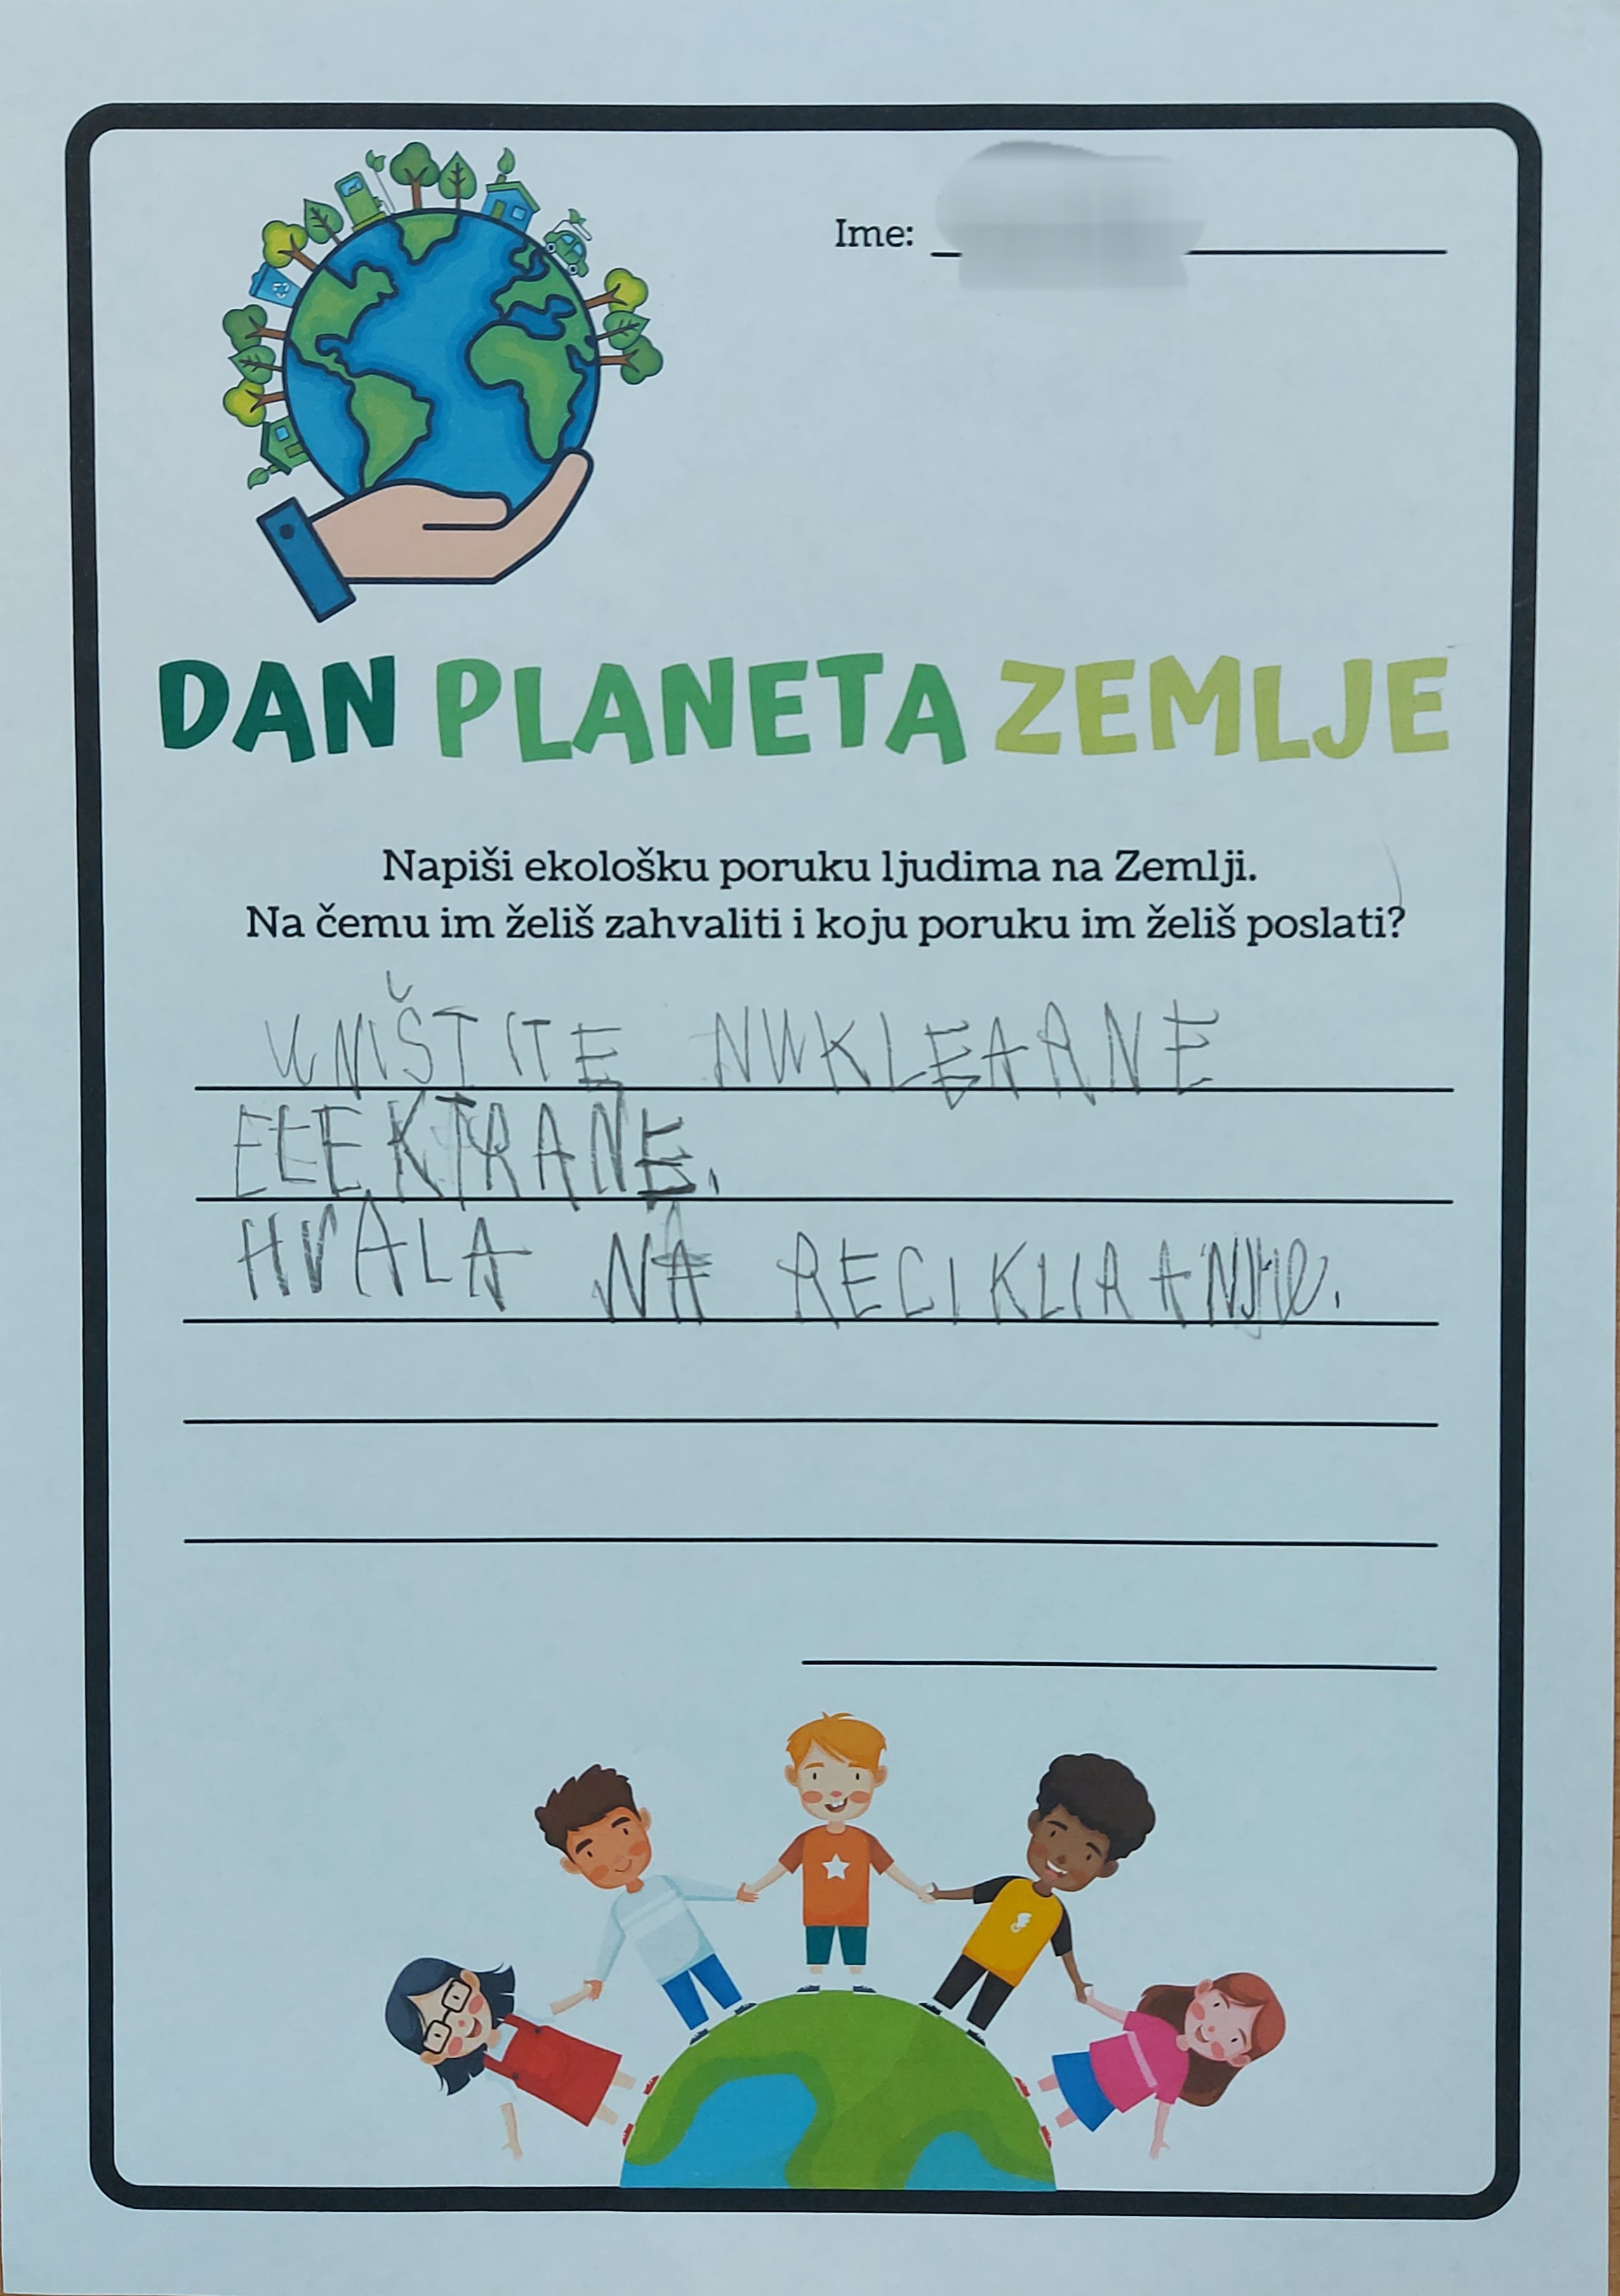 Ime:
DAN PLANETA ZEMLJE
Napiši ekološku poruku ljudima na Zemlji.
Na čemu im želiš zahvaliti i koju poruku im želiš poslati?
UNIŠTITE NUKLEARNE
ELEKTRANE.
HVALA NA RECIKLIRANJU.